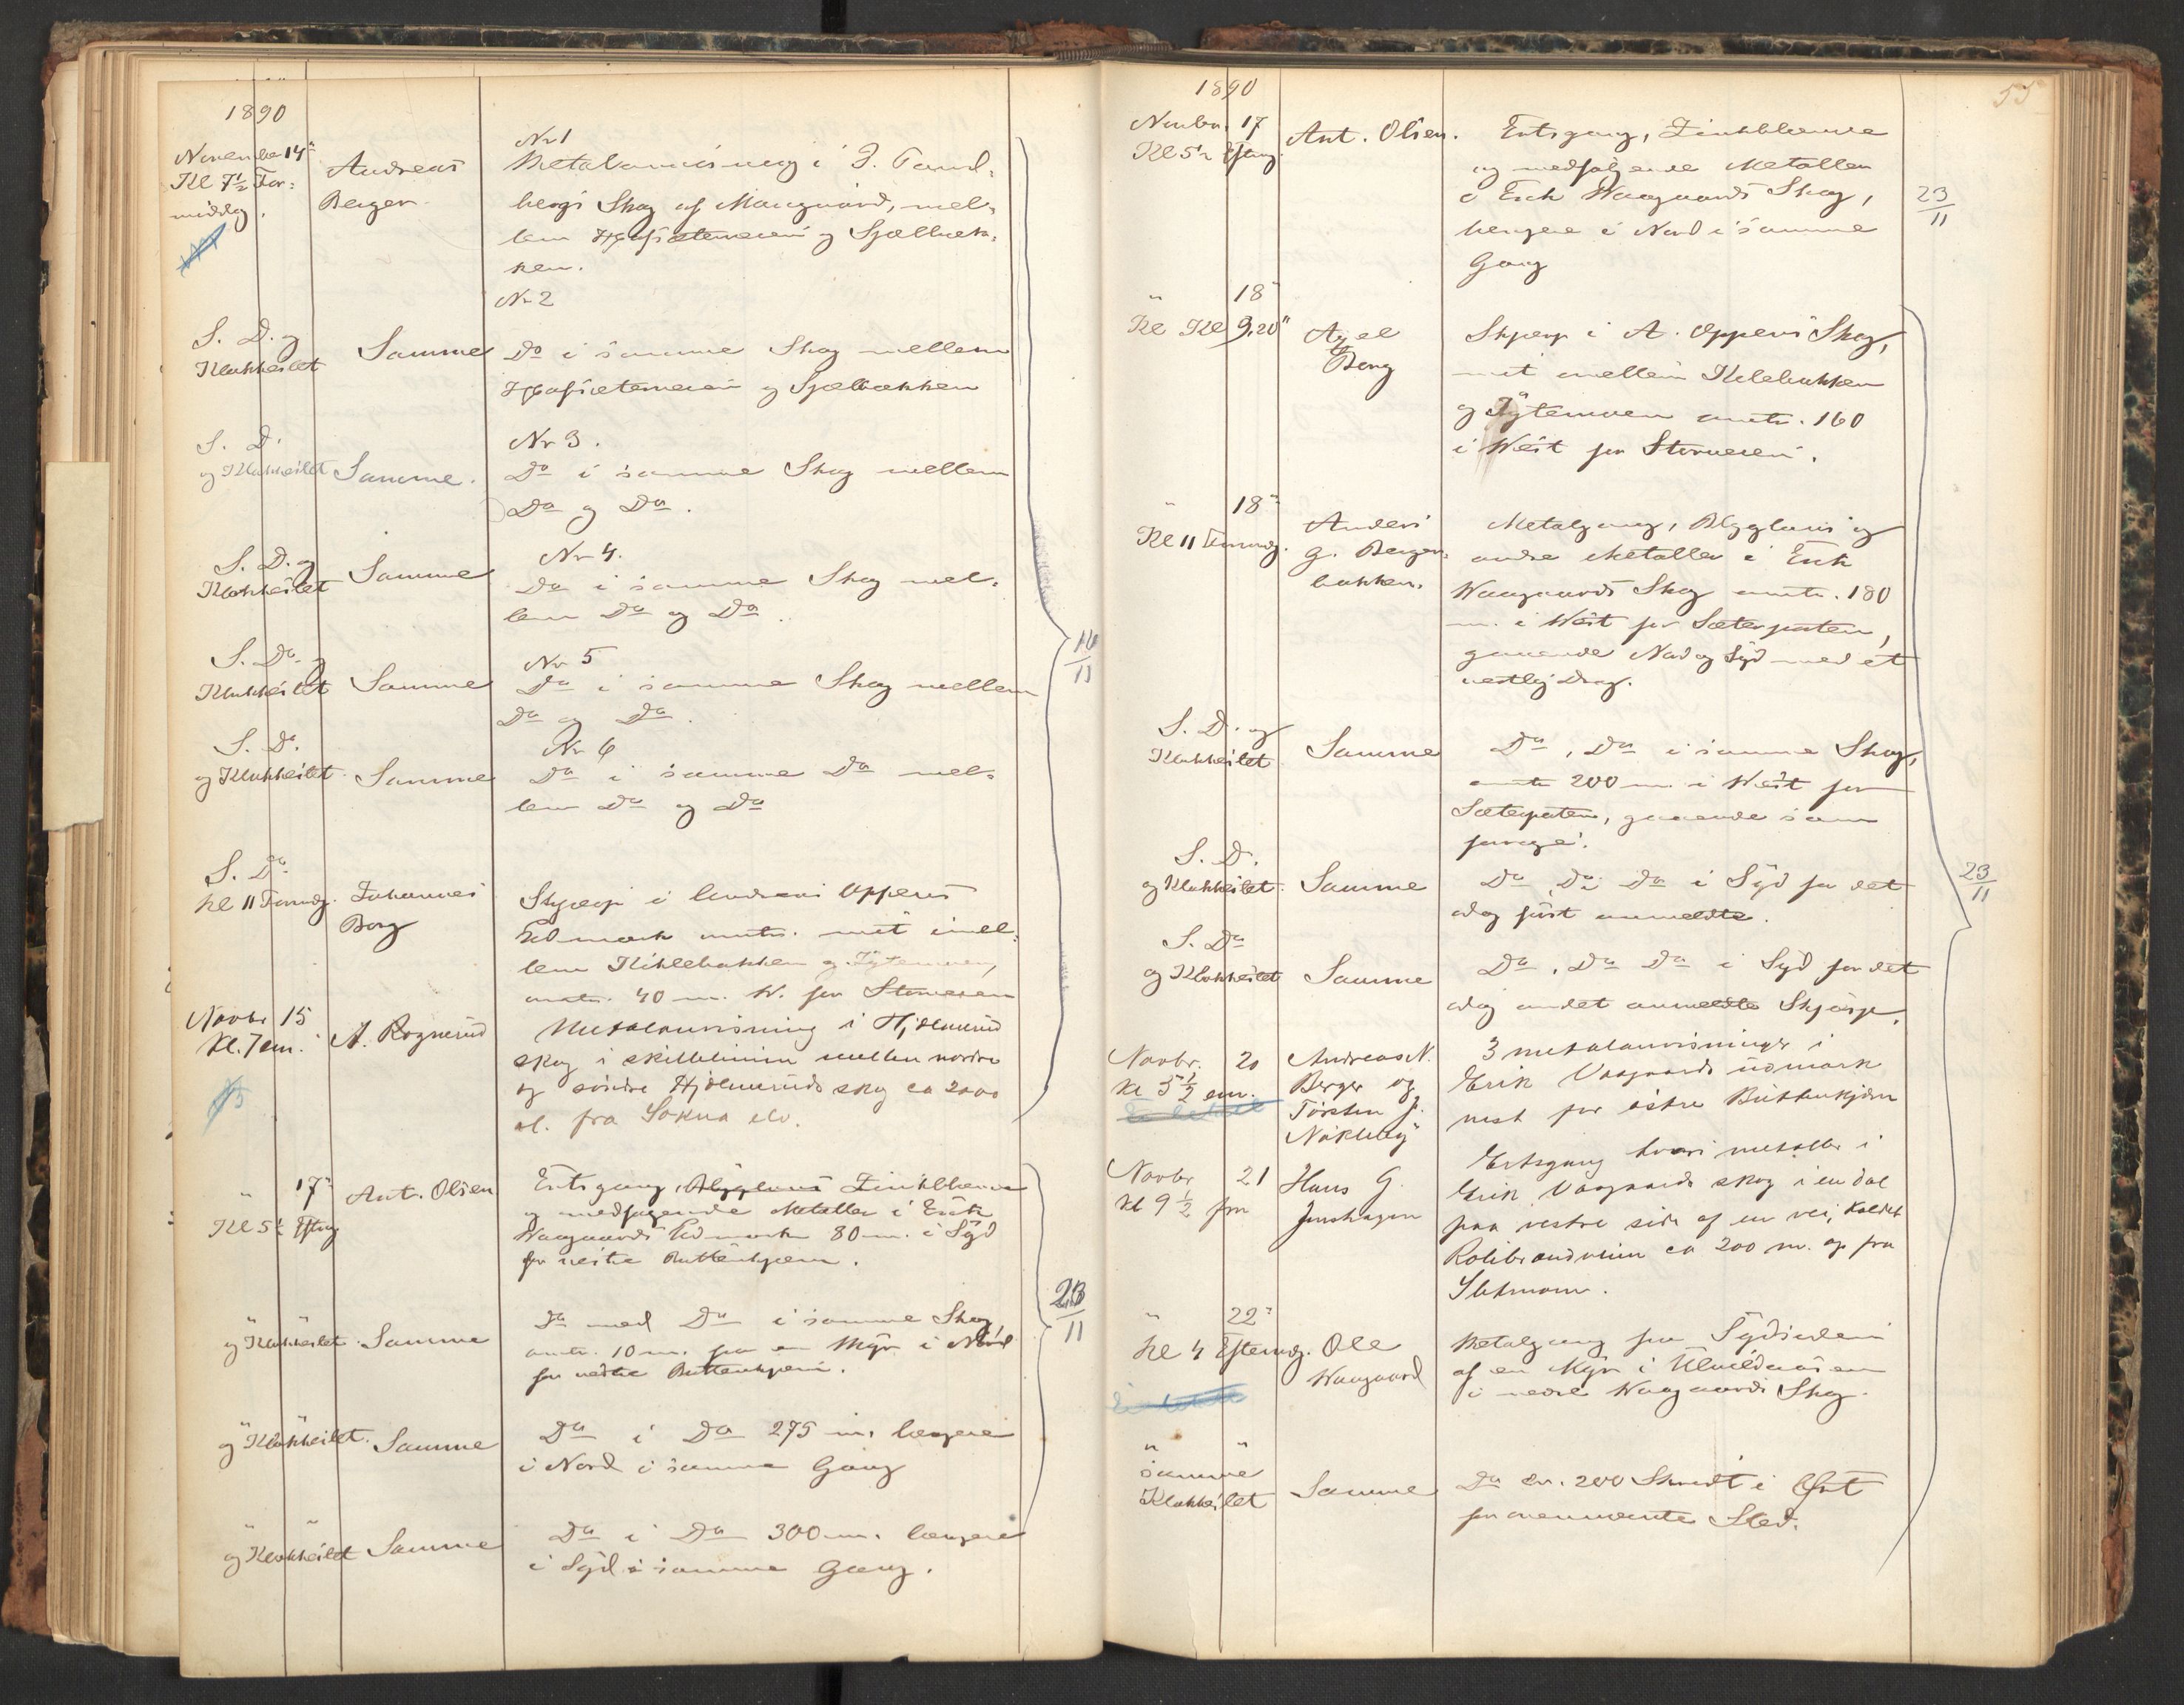 1890
November 14de
Kl 7½ For-
middg.
Andreas
Berger
Nr 1
Metalanvisning i J. Tand-
bergs Skog af Maugaard, mel-
lem og Sjælbæk-
ken.
S. D. og
Klokkeslet
Samme
Nr 2
Do i samme Skog mellem
og Sjælbækken
S. D.
og Klokkeslet
Samme.
Nr 3.
Do i samme Skog mellem
Do og Do.
S. D. og
Klokkeslet
Samme
Nr 4.
Do i samme Skog mel-
lem Do og Do.
S. Do. og
Klokkeslet
Samme
Nr 5
Do i samme Skog mellem
Do og Do.
S. D.
og Klokkeslet.
Samme
Nr 6
Do i samme Do mel-
lem Do og Do
16
11
S. Do.
Kl 11 Formdg.
Johannes
Borg
Skjærp i Andreas Oppens
Udmark omtr. mit imel-
lem Kihlebakken og Tytemoen,
omtr. 40 m. W. for Storveien
Novbr 15
Kl. 7 em.
A. Rognerud
Metalanvisning i Hjelmerud
skog i skillelinien mellem nordre
og søndre Hjelmeruds skog ca 2000
al. fra Sokna elv.
" 17de
Kl 5½ Eftmg
Ant. Olsen
Ertsgang, Blyglans Zinkblende
og medfølgende Metaller i Erik
Waagaards Udmark 80 m. i Syd
for vestre Buttentjern.
og Klokkeslet.
Samme
Do med Do i samme Skog,
omtr. 10 m. fra en Myr i Nord
for vestre Buttentjern.
23
11
og Klokkeslet.
Samme
Do i Do 275 m. længere
i Nord i samme Gang
og Klokkeslet
Samme
Do i Do 300 m. længere
i Syd i samme Gang.
55
1890
Novbr. 17
Kl 5½ Eftmg.
Ant. Olsen.
Ertsgang, Zinkblende
og medfølgende Metaller
i Erik Waagaards Skog,
længere i Nord i samme
Gang
23
11
" 18
Kl Kl 9.20"
Axel
Berg
Skjærp i A. Oppens Skog,
mit imellem Kilebakken
og Tytemoen omtr. 160
i West for Storveien.
" 18de
Kl 11 Formdg.
Anders
G. Berger-
bakken.
Metalgang, Blyglans og
andre Metaller i Erik
Waagaards Skog omtr. 180
m. i West for Sæterporten,
gaaende Nord og Syd med et
vestlig Drag.
S. D. og
Klokkeslet
Samme
Do, Do i samme Skog,
omtr 200 m. i West for
Sæterporten, gaaende som
forrige.
S. D.
og Klokkeslet.
Samme
Do Do Do i Syd for det
idag først anmeldte.
23
11
S. Do
og Klokkeslet
Samme
Do, Do Do i Syd for det
idag andet anmeldte Skjærp.
Novbr. 20
Kl 5½ em.
Andreas N.
Berger og
Torsten J.
Nökleby
3 metalanvisninger i
Erik Vaagaards udmark
vest for østre Buttentjern
Novbr 21
Kl 9½ fm
Hans G.
Jenshagen
Ertsgang hvori metaller i
Erik Vaagaards skog i en dal
paa vestre side af en vei, kaldet
Kolibrandveien ca 200 m. op fra
Sletmoen.
" 22de
Kl 4 Eftermdg.
Ole
Waagaard
Metalgang paa Sydsiden
af en Myr i Ulvildaasen
i nedre Waagaards Skog.
" "
samme
Klokkeslet
Samme
Do ca. 200 Skridt i Øst
for ovennævnte Sted.